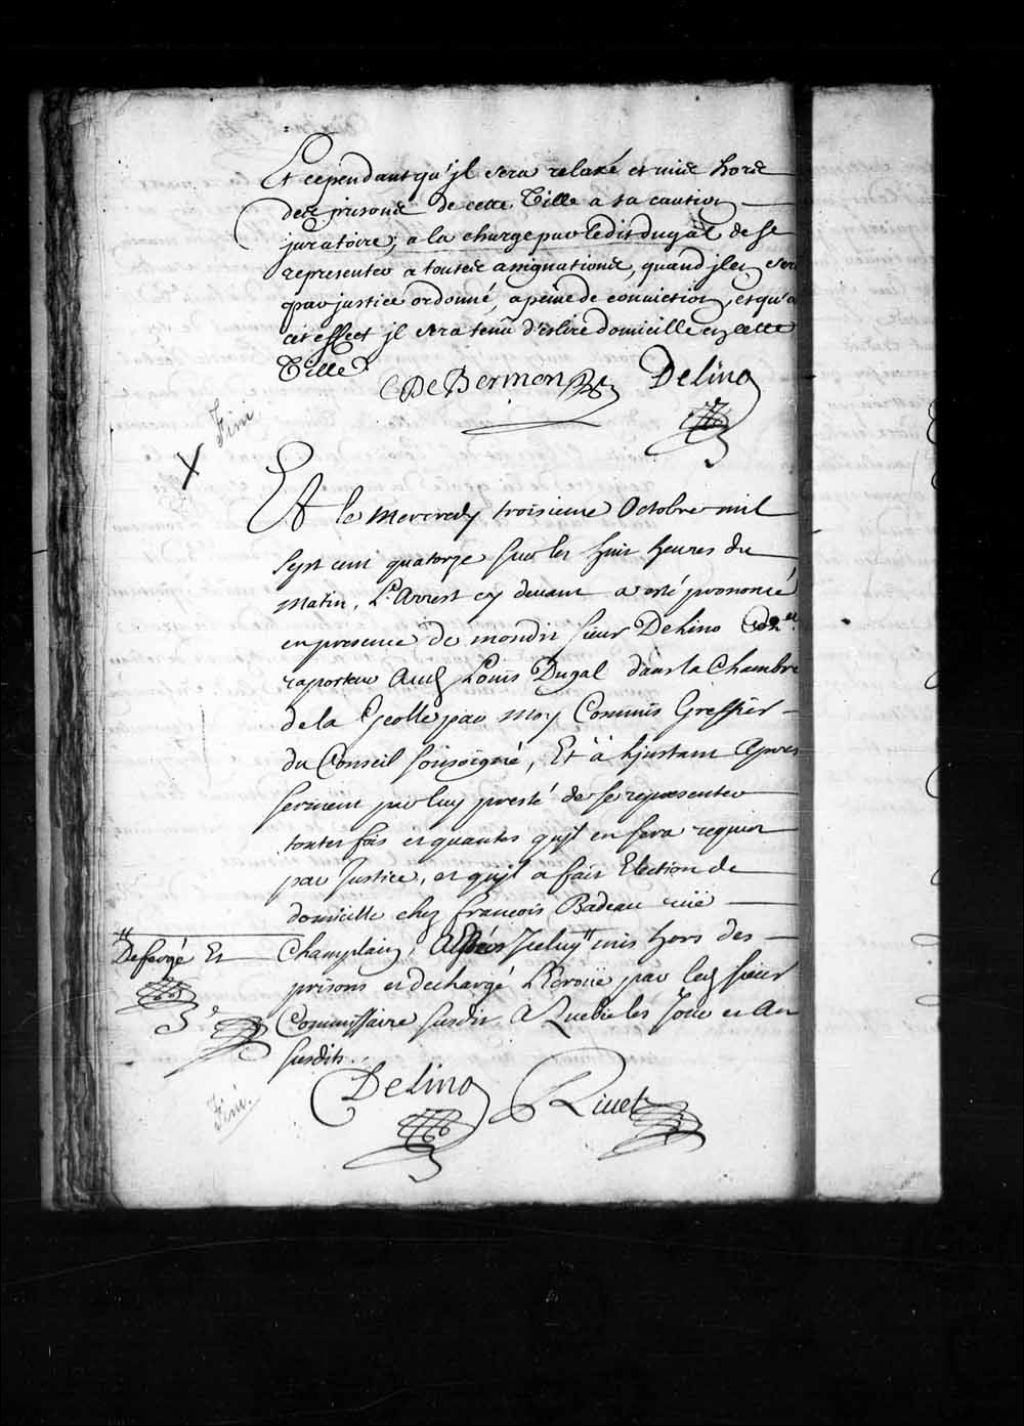 Et cependant qu'jl sera relaxé et mis hors
des prisons de cette Ville a sa caution
juratoire, a la charge par ledit dugal de se
representer a toutes assignations, quand jl en sera
par justice ordonné, a peine de conviction, et qu'a
cet effect jl sera tenu d'eslire domicille en cette
Ville
DeBermen Delino
Fini
X
Et le Mercredy troisieme Octobre mil
sept cent quatorze sur les huit heures du
Matin, L'Arrest cy devant a esté prononcé
en presence de mondit sieur Delino Con.er
raporteur Aud Louis Dugal dans la Chambre
de la Geolle par Moy Commis Greffier
du Conseil soussigné, Et à Linstant Apres
serment par luy presté de se representer
toutes fois et quantes qujl en sera requis
par Justice, et qujl a fait Election de
domicille chez francois Badeau rüe
Champlain, Iceluy mis hors des
Defergé Et
prisons et dechargé L'Ecroüe par led sieur
Commissaire susdit A Quebec les Jour et An
susdits.
Fini.
Delino Rivet